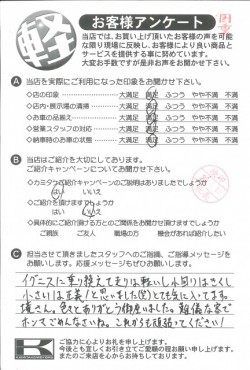 軽
お客様アンケート
当店では、お買い上げ頂いたお客様の声を可能
な限り現場に反映し、お客様により良い商品と
サービスを提供する事に努めています。
大変お手数ですが是非お声をお聞かせ下さい。
A 当店を実際にご利用になった印象をお聞かせ下さい。
◇店の印象 大満足 満足 ふつう やや不満 不満
◇店内・展示場の清掃 大満足 満足 ふつう やや不満 不満
◇お車の品揃え 大満足 満足 ふつう やや不満 不満
◇営業スタッフの対応 大満足 満足 ふつう やや不満 不満
◇納車時のお車の状態 大満足 満足 ふつう やや不満 不満
B 当店はご紹介を大切にしております。
ご紹介キャンペーンについてお聞かせ下さい。
◇カミタケご紹介キャンペーンのご説明はありましたでしょうか
はい いいえ
◇ご紹介を頂けますでしょうか
はい いいえ
◇具体的にご紹介頂ける方とのご関係をお聞かせ頂けますでしょうか
ご親族 ご友人 職場の方 機会があれば紹介したい
C 担当させて頂きましたスタッフへのご指摘、ご指導メッセージを
お願いします。応援メッセージもぜひお願いします。
イグニスに乗り換えて走りは軽いし小回りはきくし
小さいは正義!と思いました(笑)とても気に入ってます。
色々とありがとう御座いました。
ごめんなさいね。これからも頑張ってください!
K
ご協力に心よりお礼を申し上げます。
今後とも宜しくお引き立てご愛顧の程お願い申し上げます。
またのご来店を心からお待ちしております。